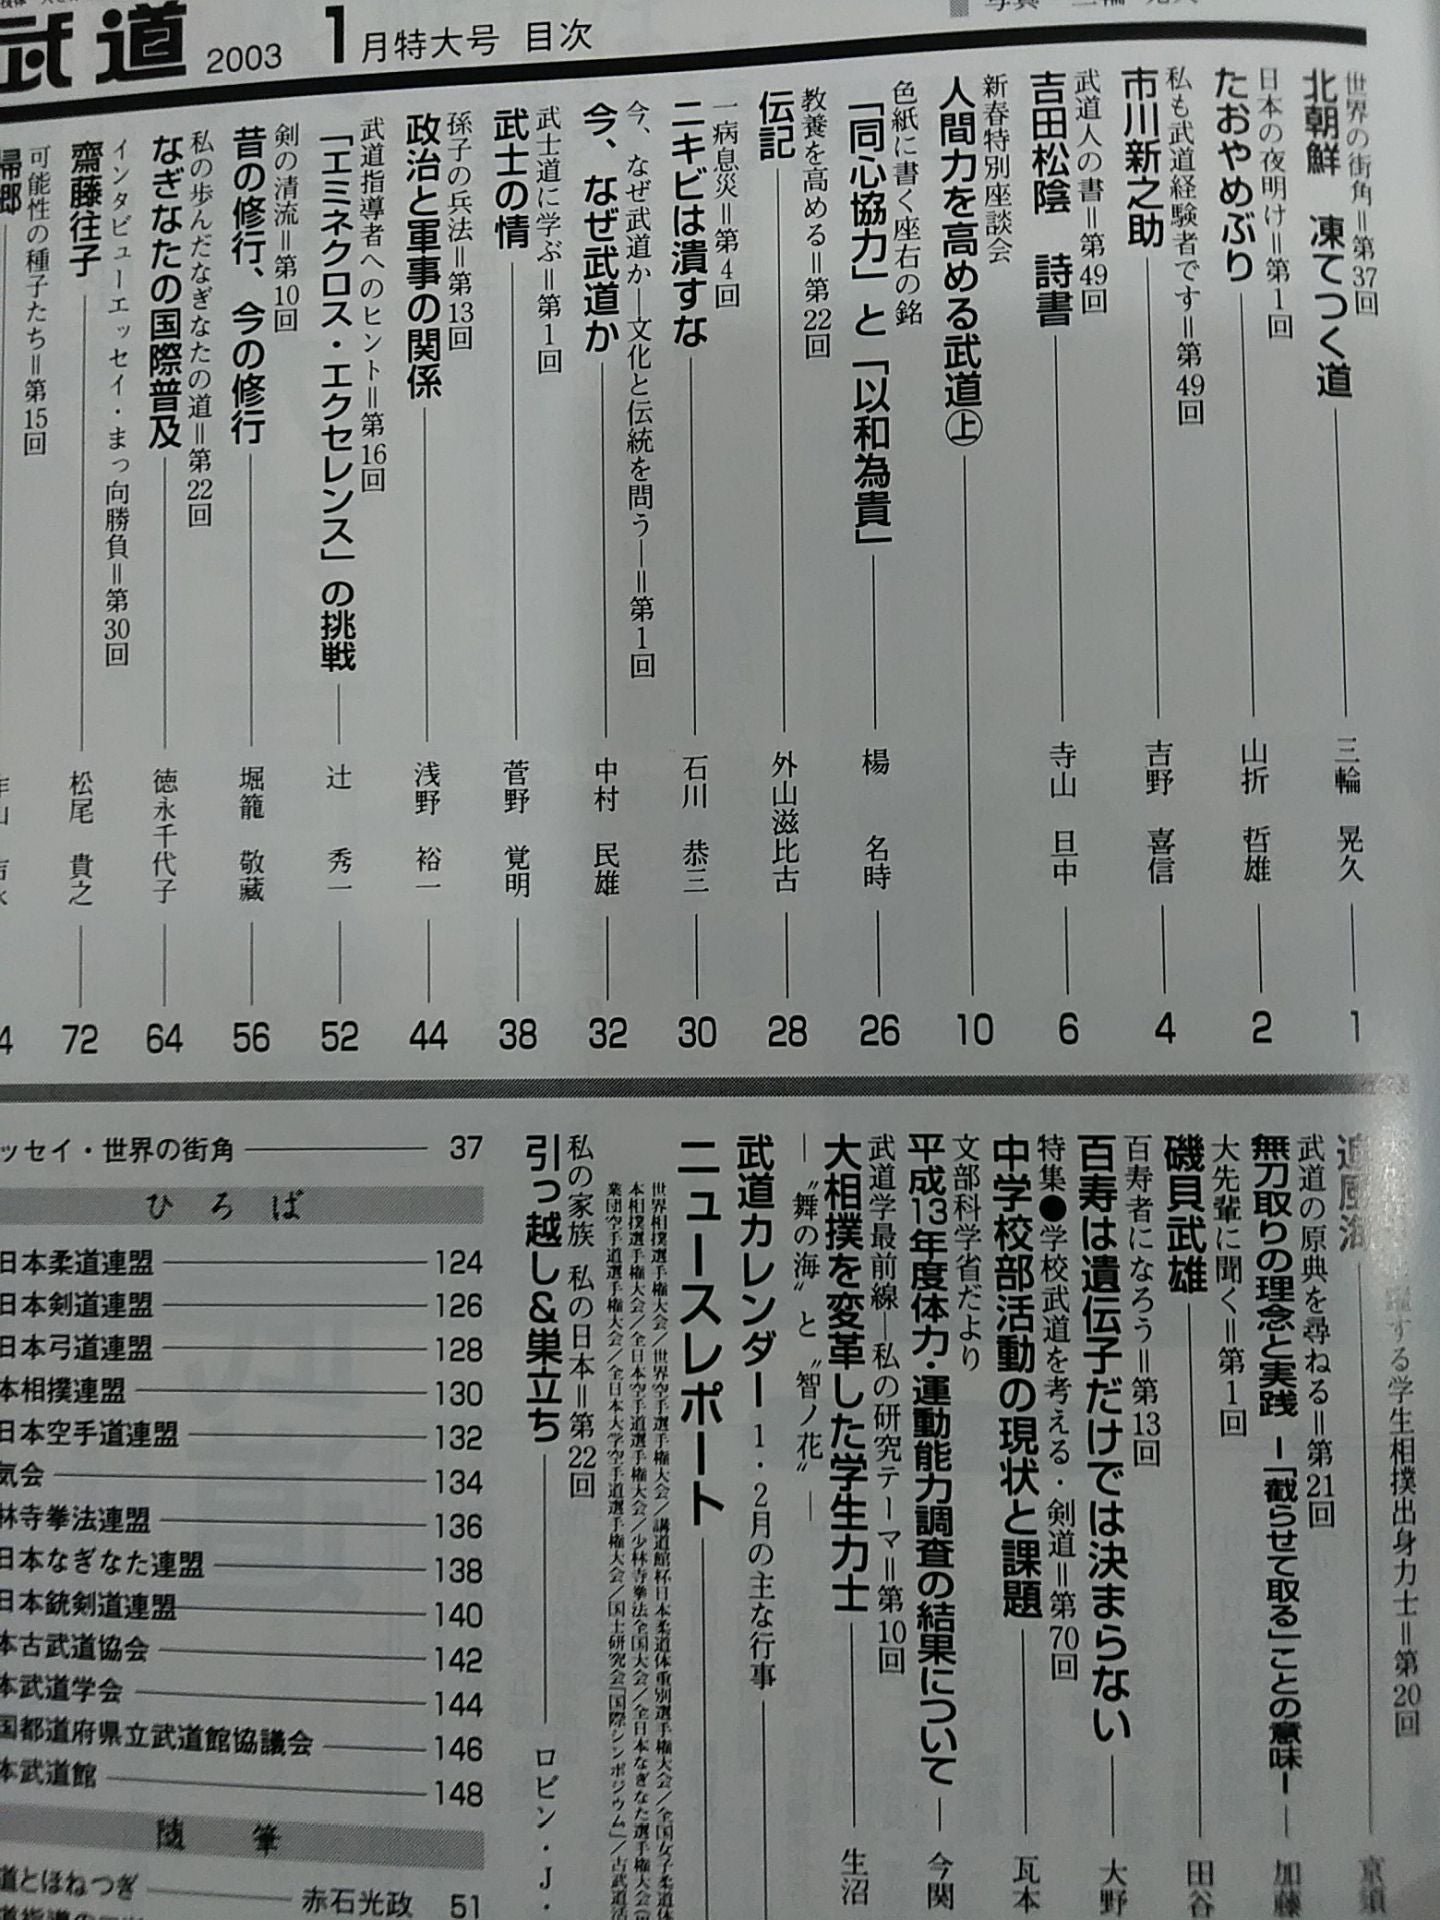 武道 2003 1月特大号 目次
世界の街角＝第37回
北朝鮮 凍てつく道 三輪 晃久 1
日本の夜明け＝第1回
たおやめぶり 山折 哲雄 2
私も武道経験者です＝第49回
市川新之助 吉野 喜信 4
武道人の書＝第49回
吉田松陰 詩書 寺山 旦中 6
新春特別座談会
人間力を高める武道㊤ 10
色紙に書く座右の銘
「同心協力」と「以和為貴」 楊 名時 26
教養を高める＝第22回
伝記 外山滋比古 28
一病息災＝第4回
ニキビは潰すな 石川 恭三 30
今、なぜ武道か―文化と伝統を問う―＝第1回
今、なぜ武道か 中村 民雄 32
武士道に学ぶ＝第1回
武士の情 菅野 覚明 38
孫子の兵法＝第13回
政治と軍事の関係 浅野 裕一 44
武道指導者へのヒント＝第16回
「エミネクロス・エクセレンス」の挑戦 辻 秀一 52
剣の清流＝第10回
昔の修行、今の修行 堀籠 敬蔵 56
私の歩んだなぎなたの道＝第22回
なぎなたの国際普及 徳永千代子 64
インタビューエッセイ・まっ向勝負＝第30回
齋藤往子 松尾 貴之 72
可能性の種子たち＝第15回
帰郷
する学生相撲出身力士＝第20回
武道の原典を尋ねる＝第21回
無刀取りの理念と実践 ―「截らせて取る」ことの意味― 加藤
大先輩に聞く＝第1回
磯貝武雄 田谷
百寿者になろう＝第13回
百寿は遺伝子だけでは決まらない 大野
特集●学校武道を考える・剣道＝第70回
中学校部活動の現状と課題 瓦本
文部科学省だより
平成13年度体力・運動能力調査の結果について 今関
武道学最前線―私の研究テーマ＝第10回
大相撲を変革した学生力士 生沼
―〝舞の海〟と〝智ノ花〟―
武道カレンダー 1・2月の主な行事
ニュースレポート
世界相撲選手権大会／世界空手選手権大会／講道館杯日本柔道体重別選手権大会／全国女子柔道体
本相撲選手権大会／全日本空手道選手権大会／少林寺拳法全国大会／全日本なぎなた選手権大会
業団空手道選手権大会／全日本大学空手道選手権大会／国士研究会「国際シンポジウム」／古武道活
私の家族 私の日本＝第22回
引っ越し&巣立ち ロビン・J・
ッセイ・世界の街角 37
ひろば
日本柔道連盟 124
日本剣道連盟 126
日本弓道連盟 128
本相撲連盟 130
日本空手道連盟 132
気会 134
林寺拳法連盟 136
日本なぎなた連盟 138
日本銃剣道連盟 140
本古武道協会 142
本武道学会 144
国都道府県立武道館協議会 146
本武道館 148
随筆
道とほねつぎ 赤石光政 51